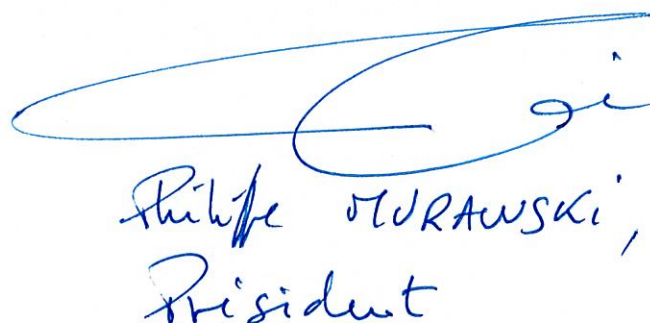 Philippe MURAWSKI,
Président